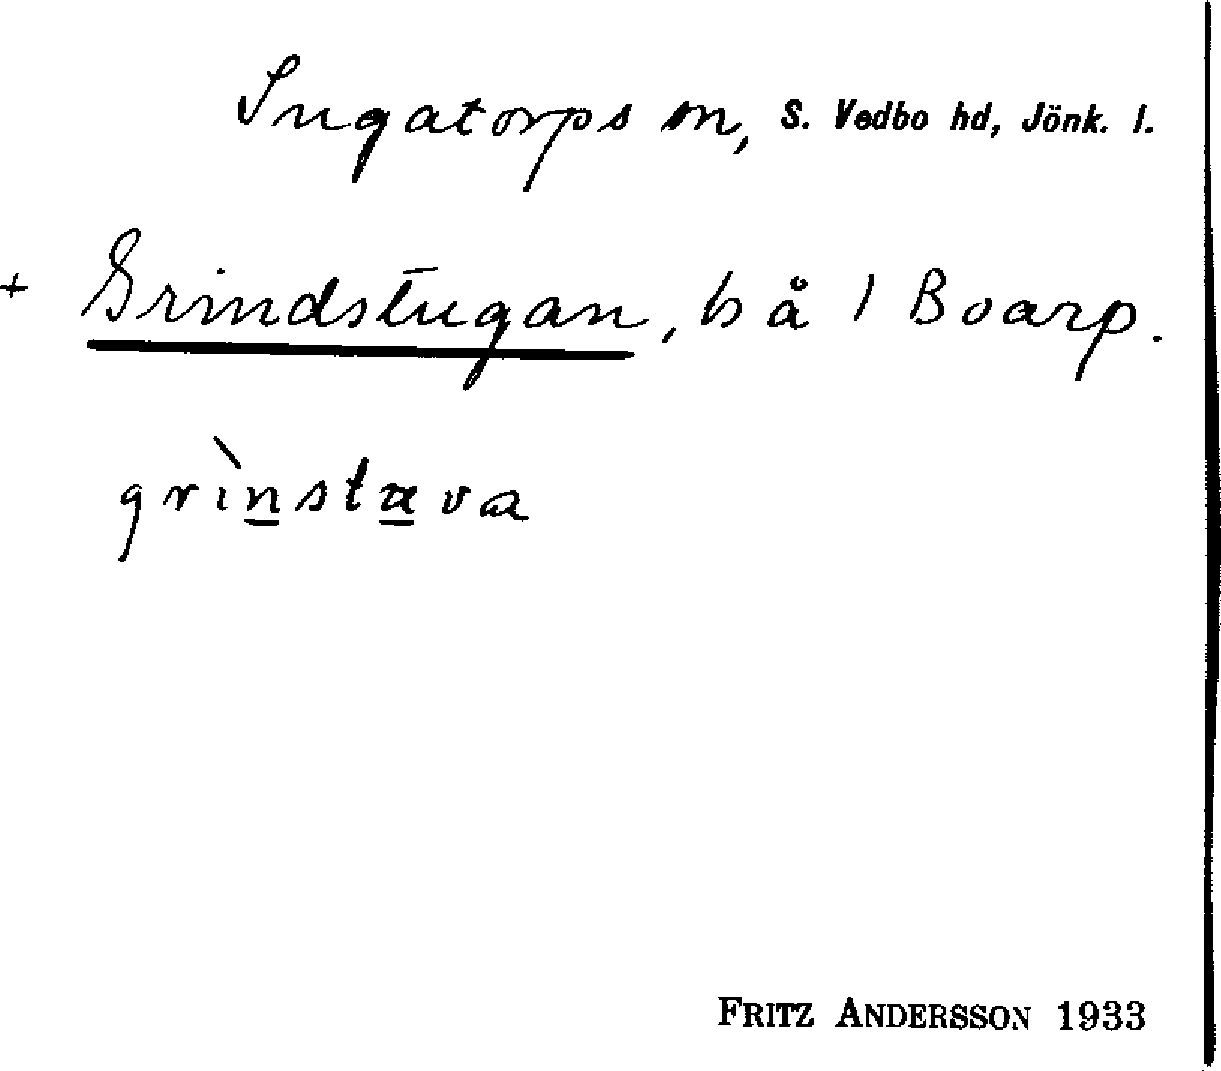 Ingatorps sn, S. Vedbo hd, Jönk. l.
+ Grindstugan, bå 1 Boarp.
grìnstuva
FRITZ ANDERSSON 1933